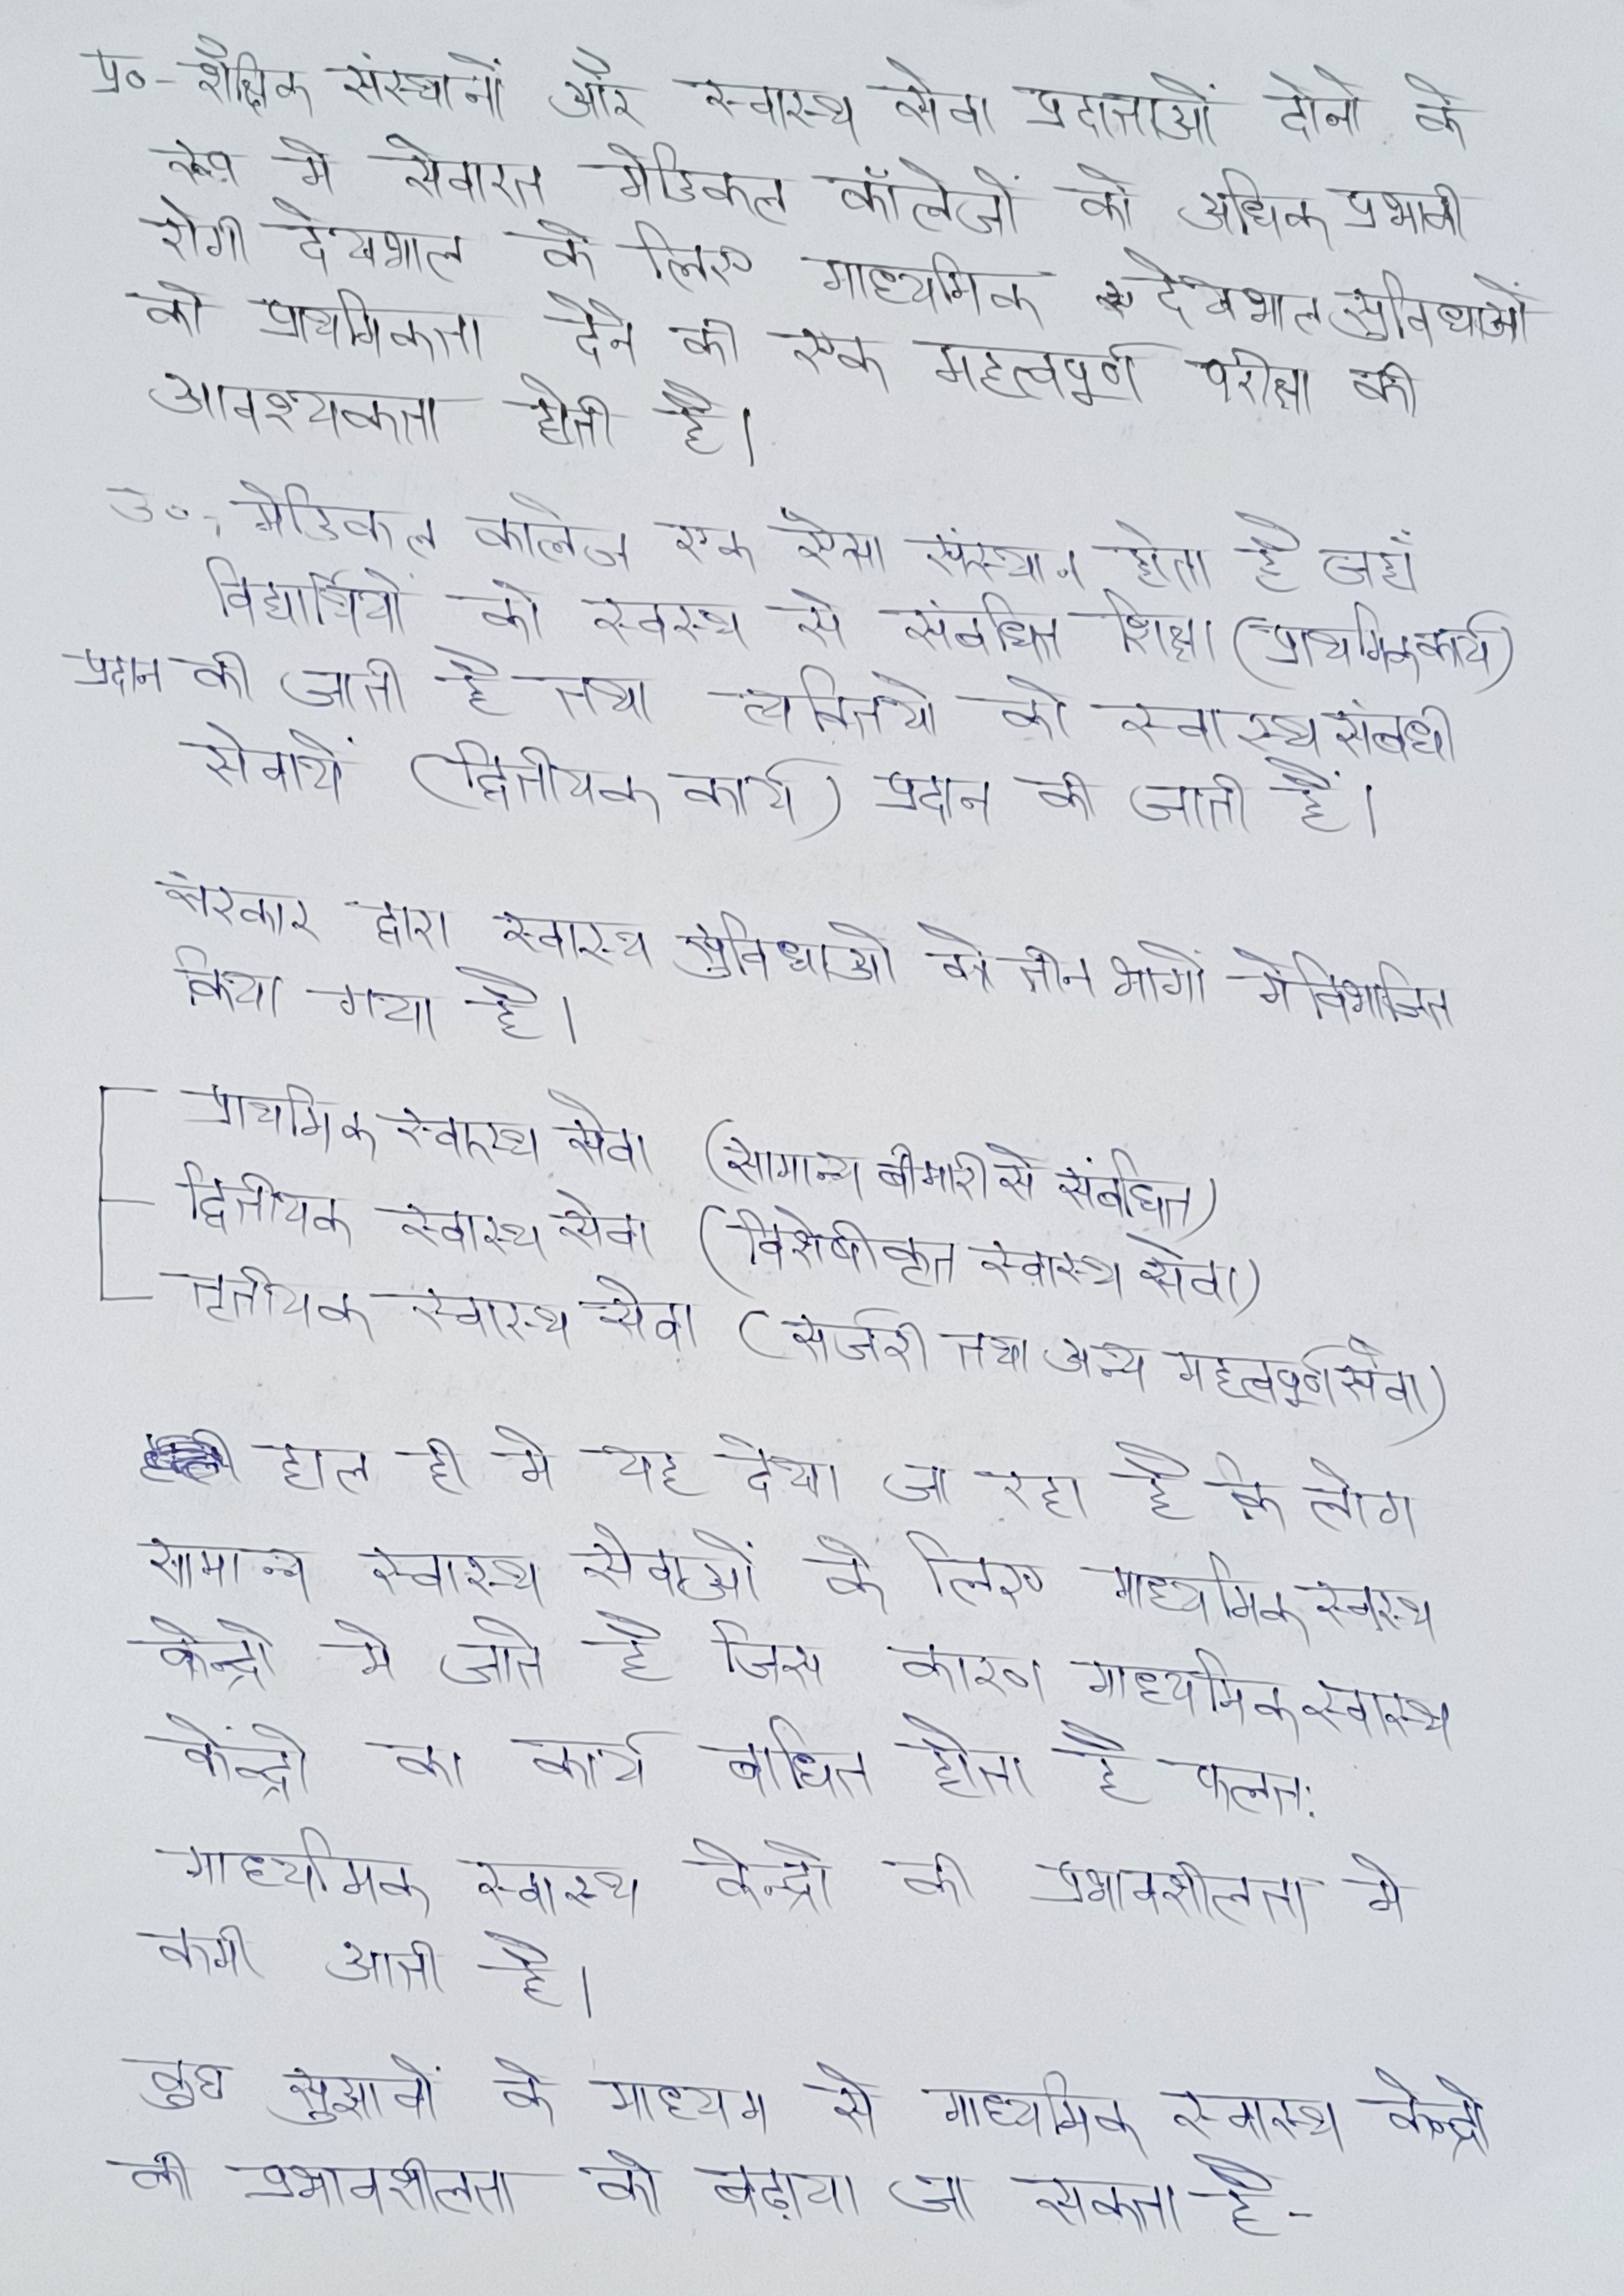 प्र०- शैक्षिक संस्थानों और स्वास्थ्य सेवा प्रदाताओं दोनो के
रूप मे सेवारत मेडिकल कॉलेजों को अधिक प्रभावी
रोगी देखभाल के लिए माध्यमिक देखभाल सुविधाओं
को प्राथमिकता देने की एक महत्वपूर्ण परीक्षा की
आवश्यकता होती है।
उ०, मेडिकल कालेज एक ऐसा संस्थान होता है जहाँ
विद्यार्थियों को स्वस्थ से संबंधित शिक्षा (प्राथमिक कार्य)
प्रदान की जाती है तथा व्यक्तियो को स्वास्थ संबधी
सेवायें (द्वितीयक कार्य) प्रदान की जाती हैं।
सरकार द्वारा स्वास्थ सुविधाओ को तीन भागों में विभाजित
किया गया है।
प्राथमिक स्वास्थ सेवा (सामान्य बीमारी से संबंधित)
द्वितीयक स्वास्थ सेवा (विशेषीकृत स्वास्थ सेवा)
तृतीयक स्वास्थ सेवा (सर्जरी तथा अन्य महत्वपूर्ण सेवा)
हाल ही मे यह देखा जा रहा है कि लोग
सामान्य स्वास्थ सेवाओं के लिए माध्यमिक स्वास्थ
केन्द्रो मे जाते है जिस कारण माध्यमिक स्वास्थ
केंन्द्रो का कार्य बाधित होता है फलत:
माध्यमिक स्वास्थ केन्द्रो की प्रभावशीलता मे
कमी आती है।
कुछ सुझावों के माध्यम से माध्यमिक स्वास्थ केन्द्रो
की प्रभावशीलता को बढ़ाया जा सकता है-